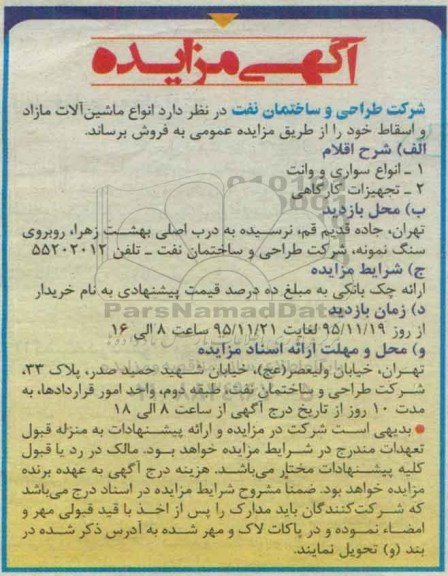 آگهی مزایده
شرکت طراحی و ساختمان نفت در نظر دارد انواع ماشین‌آلات مازاد
و اسقاط خود را از طریق مزایده عمومی به فروش برساند.
الف) شرح اقلام
۱ ـ انواع سواری و وانت
۲ ـ تجهیزات کارگاهی
ب) محل بازدید
تهران، جاده قدیم قم، نرسیده به درب اصلی بهشت زهرا، روبروی
سنگ نمونه، شرکت طراحی و ساختمان نفت ـ تلفن ۵۵۲۰۲۰۱۲
ج) شرایط مزایده
ارائه چک بانکی به مبلغ ده درصد قیمت پیشنهادی به نام خریدار
د) زمان بازدید
ParsNamadData
از روز ۹۵/۱۱/۱۹ لغایت ۹۵/۱۱/۲۱ ساعت ۸ الی ۱۶
و) محل و مهلت ارائه اسناد مزایده
تهران، خیابان ولیعصر(عج)، خیابان شهید حمید صدر، پلاک ۳۳،
شرکت طراحی و ساختمان نفت، طبقه دوم، واحد امور قراردادها، به
مدت ۱۰ روز از تاریخ درج آگهی از ساعت ۸ الی ۱۸
● بدیهی است شرکت در مزایده و ارائه پیشنهادات به منزله قبول
تعهدات مندرج در شرایط مزایده خواهد بود. مالک در رد یا قبول
کلیه پیشنهادات مختار می‌باشد. هزینه درج آگهی به عهده برنده
مزایده خواهد بود. ضمناً مشروح شرایط مزایده در اسناد درج می‌باشد
که شرکت‌کنندگان باید مدارک را پس از اخذ با قید قبولی مهر و
امضاء نموده و در پاکات لاک و مهر شده به آدرس ذکر شده در
بند (و) تحویل نمایند.